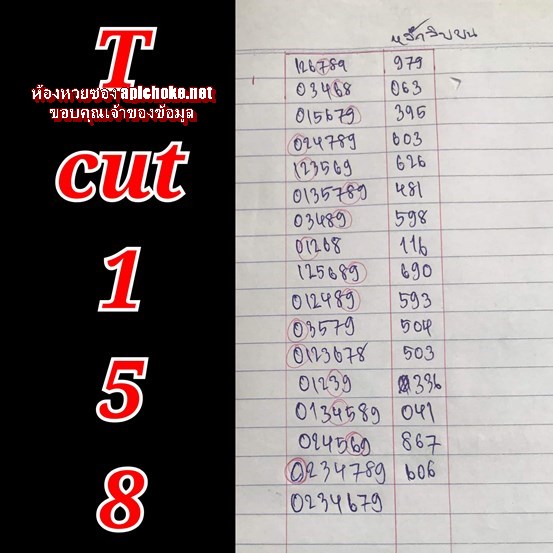 T
ห้องหวยซอง aplchoke.net
ขอบคุณเจ้าของข้อมูล
cut
1
5
8
หลักสิบบน
126789 979
03468 063
015679 395
024789 603
123569 626
0135789 481
03489 598
01268 116
125689 690
012489 593
03579 504
0123678 503
01239 336
0134589 041
024569 867
0234789 606
0234679